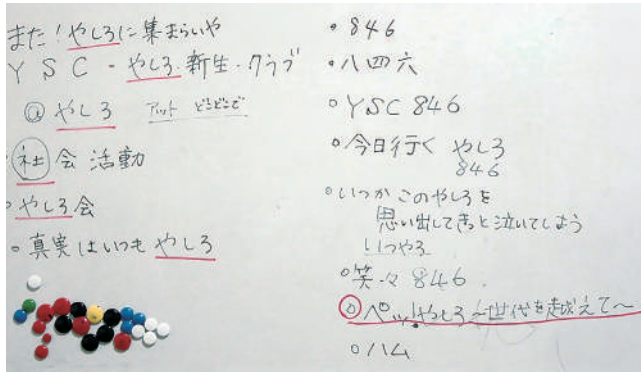 また!やしろに集まらいや
YSC - やしろ・新生・クラブ
@やしろ アット どこどこで
・社会活動
・やしろ会
・真実はいつもやしろ
・846
・八四六
・YSC 846
・今日行く やしろ
846
・いつかこのやしろを
思い出してきっと泣いてしまう
いつやろ
・笑々846.
・ペッ やしろ ~世代を越えて~
・ハム